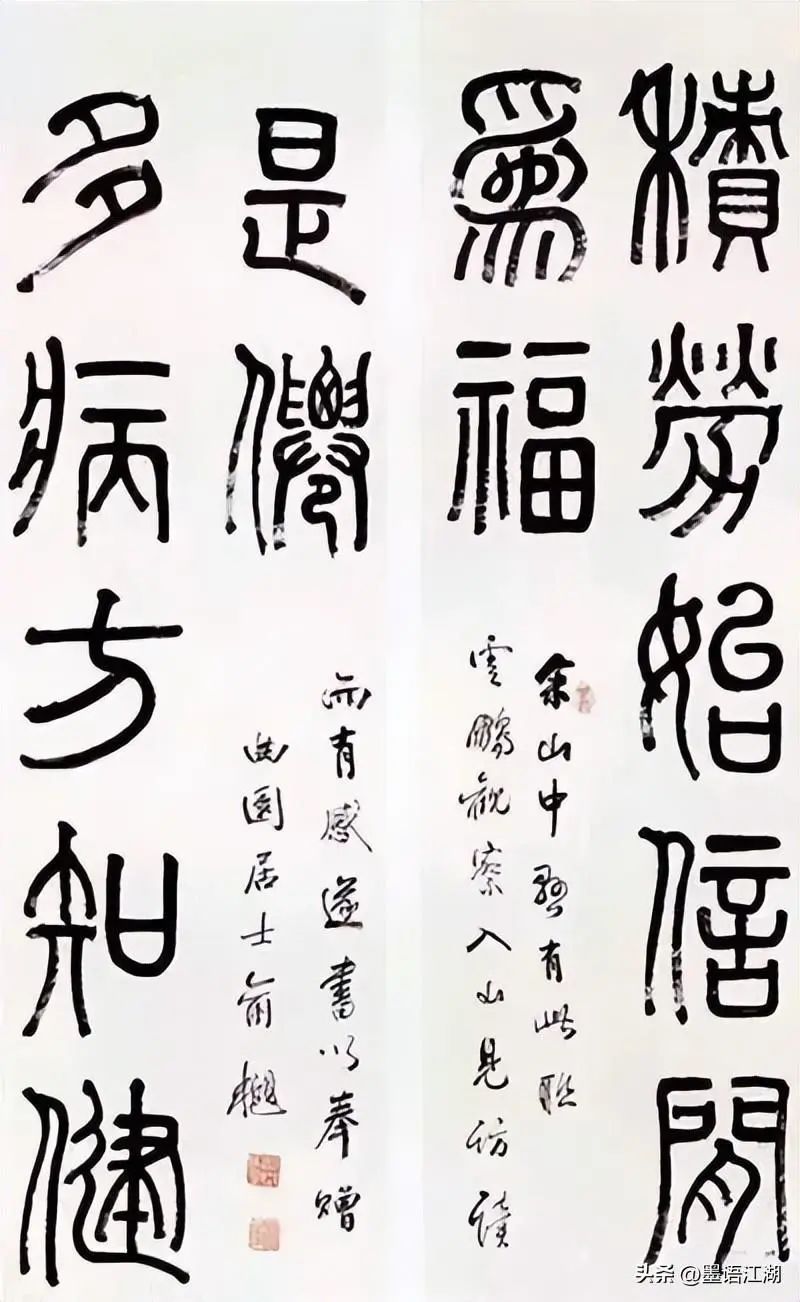 積勞始信閒
爲福
余山中舊有此聯
雲鵬觀察入山見訪讀
是僊
多病方知健
而有感遂書以奉贈
曲園居士俞樾
头条 @墨语江湖